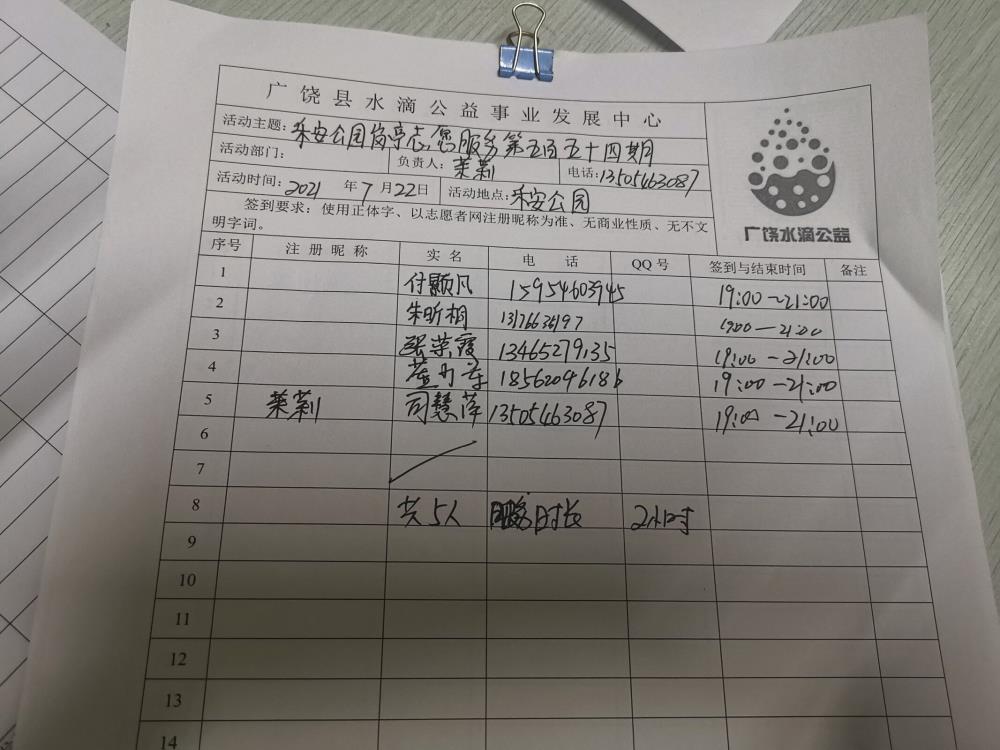 广饶县水滴公益事业发展中心
活动主题:乐安公园岗亭志愿服务第五百五十四期
活动部门: 负责人:茉莉 电话:13505463087
活动时间:2021年7月22日 活动地点:乐安公园
签到要求:使用正体字、以志愿者网注册昵称为准、无商业性质、无不文
明字词。
广饶水滴公益
序号 注册昵称 实名 电话 QQ号 签到与结束时间 备注
1 付颢凡 15954603945 19:00-21:00
2 朱昕桐 19:00-21:00
3 张荣霞 13465279135 19:00-21:00
4 18562046186 19:00-21:00
5 茉莉 司慧萍 13505463087 19:00-21:00
6
7
8 共5人 服务时长 2小时
9
10
11
12
13
14